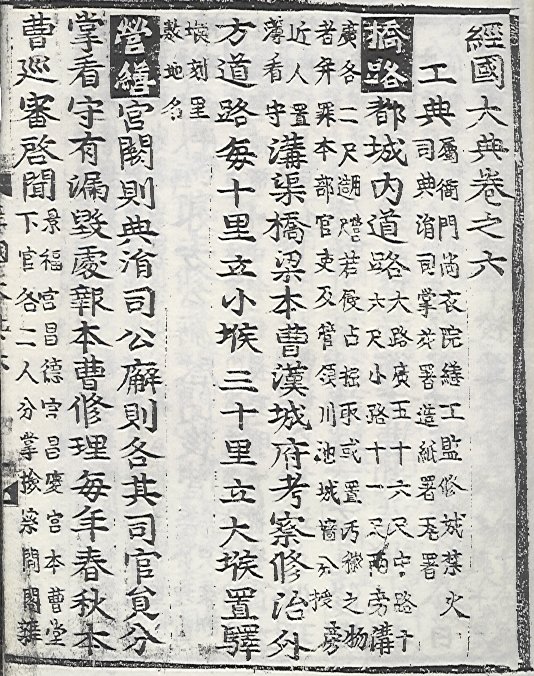 經國大典卷之六
工典 屬衙門尙衣院繕工監修城禁火
司典涓司掌苑署造紙署瓦署
橋路 都城內道路 大路廣五十六尺中路十
六尺小路十一尺兩旁溝
廣各二尺若侵占掘取或置汚穢之物
者弁罪本部官吏及管領川池城墻分授旁
近人置
薄看守 溝渠橋梁本曹漢城府考察修治外
方道路每十里立小堠三十里立大堠置驛
堠刻里
數地名
營繕 宮闕則典涓司公廨則各其司官員分
掌看守有漏毀處報本曹修理每年春秋本
曹廵審啓聞 景福宮昌德宮昌慶宮本曹堂
下官各二人分掌撿察間閣